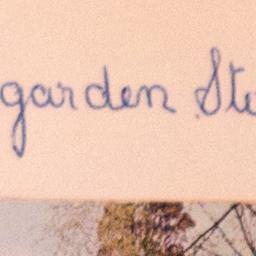 garden Ste